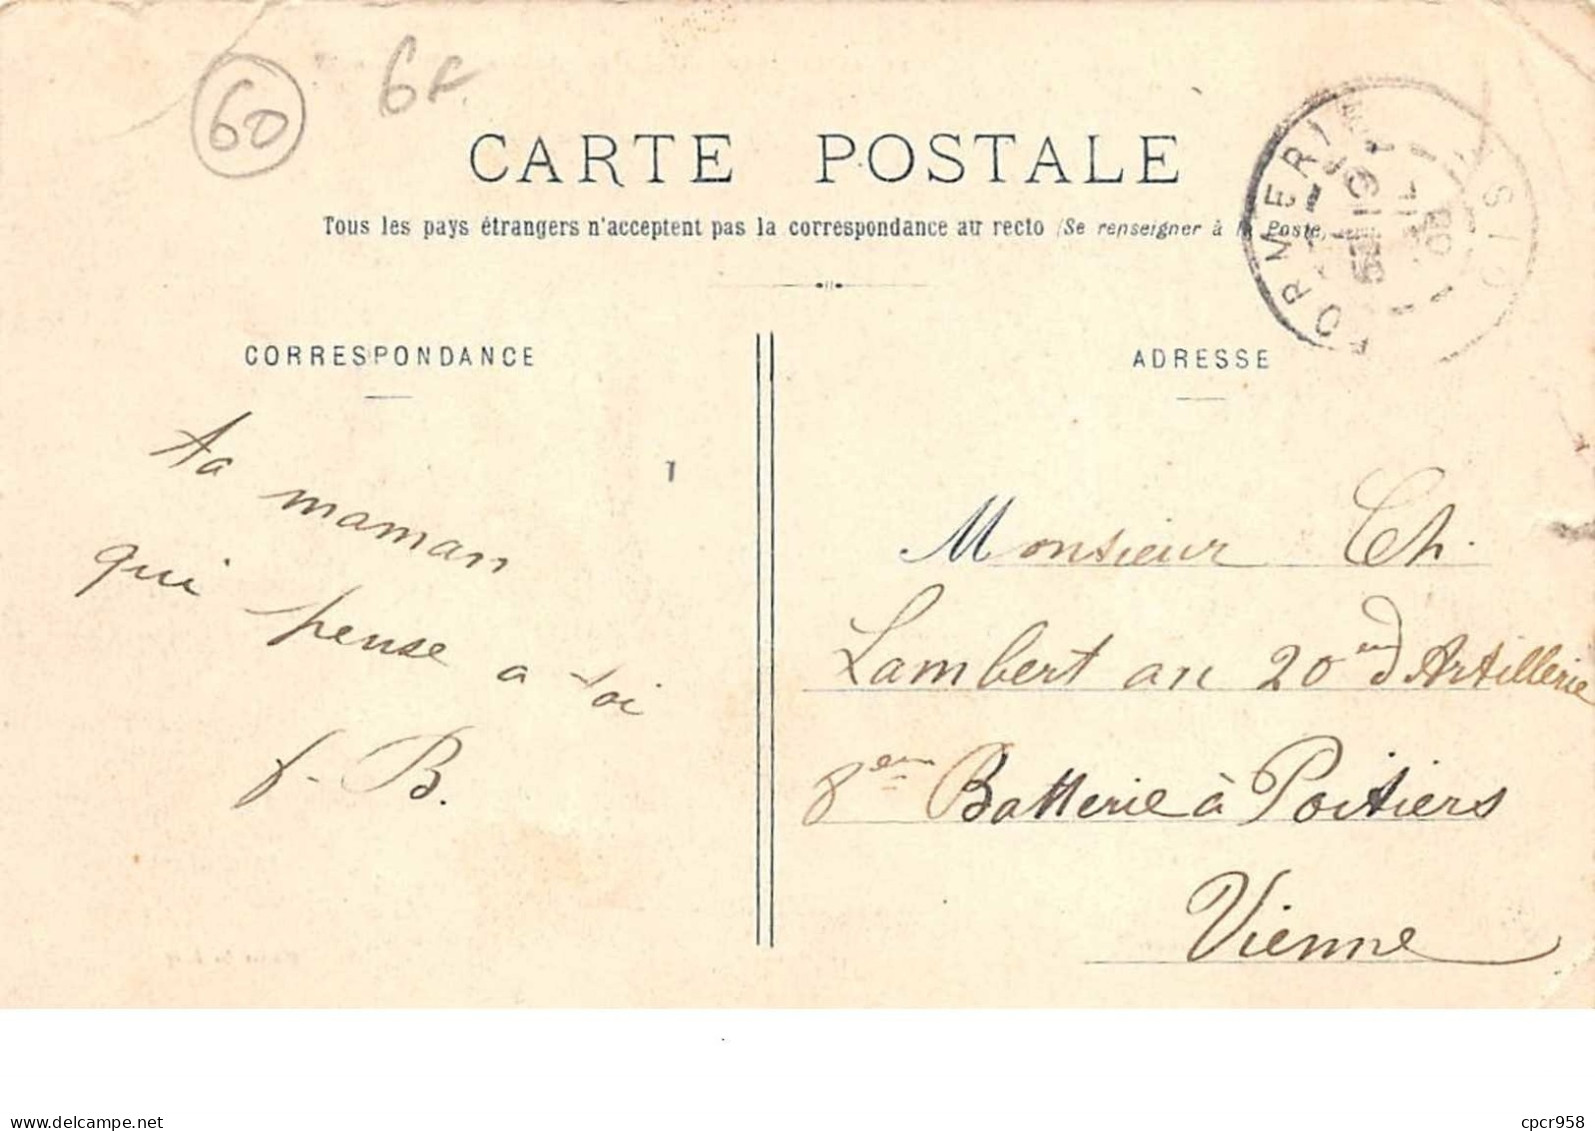 60
6F
CARTE POSTALE
Tous les pays étrangers n'acceptent pas la correspondance au recto (Se renseigner à la Poste)
FORMERIE
OISE
CORRESPONDANCE
ADRESSE
Ta
maman
qui pense a toi
f. B.
Monsieur Ch.
Lambert au 20 end Artillerie
8em Batterie à Poitiers
Vienne
www.delcampe.net
cpcr958